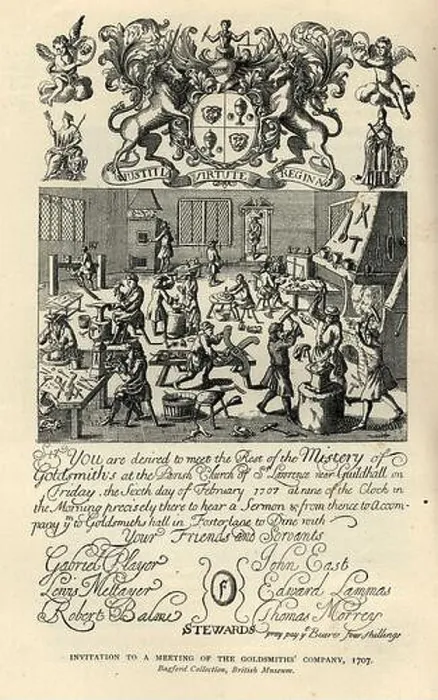 JUSTITIA VIRTUTE REGINA
Srs
You are desired to meet the Rest of the Mistery of
Goldsmiths at the Parish Church of St Lawrence near Guildhall on
Friday, the Sixth day of February 1707 at nine of the Clock in
the Morning precisely there to hear a Sermon & from thence to Accom-
pany ye to Goldsmiths hall in Foster lane to Dine with
Your Friends and Servants
Gabriel Player
John East
Lewis Mettayer
Edward Lammas
Robert Balme
Thomas Morrey
STEWARDS
pray pay ye Bearer four shillings
INVITATION TO A MEETING OF THE GOLDSMITHS' COMPANY, 1707.
Bagford Collection, British Museum.